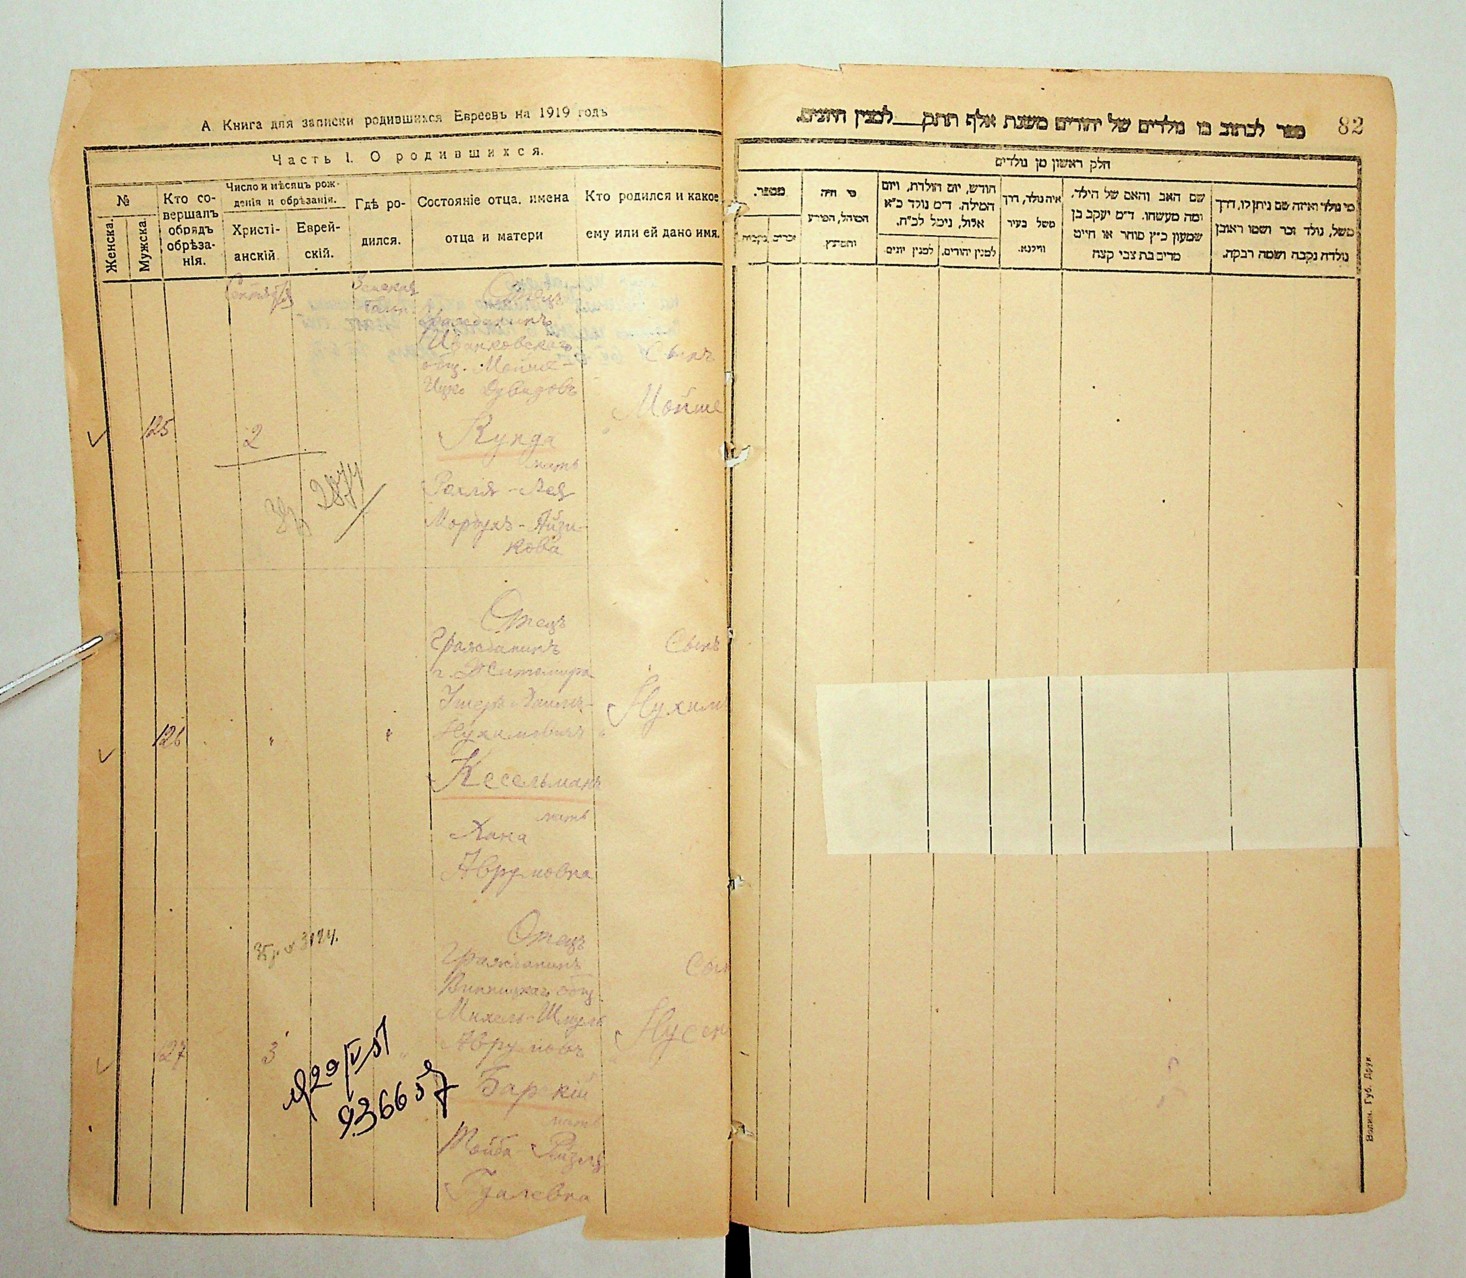 А. Книга для записки родившихся Евреевъ на 1919 годъ
Часть I. О родившихся.
№
Женска.
Мужска.
Кто со-
вершалъ
обрядъ
обрѣза-
нія.
Число и мѣсяцъ рож-
денія и обрѣзанія.
Христі-
анскій.
Еврей-
скій.
Гдѣ ро-
дился.
Состояніе отца, имена
отца и матери
Кто родился и какое
ему или ей дано имя.
125
2
2874
Отецъ
Гражданинъ
Иванковскаго
общ. Мойше-
Ицко
Кунда
мать
Рахля-Лея
Мордухъ-Айзи-
кова
Сынъ
Мойше
126
Отецъ
Гражданинъ
г. Житомира
Нухимовичъ
Кесельманъ
мать
Хана
Аврумовна
Сынъ
Нухим
3124.
127
3
Отецъ
Гражданинъ
общ.
Михель-Шмуль
Аврумовъ
Барскій
мать
Тойба-Рейзля
Гдалевна
Сын
Нусен
29/V 51
936657
82
ספר לכתוב בו נולדים של יהודים משנת אלף תתק___למנין היונים.
חלק ראשון מן נולדים
מספר.
נקבות
זכרים
מי היה
המוהל, הפורע
והמוצץ.
חודש, יום הולדת, ויום
המילה. ד״מ נולד כ״א
אלול, נימל לכ״ח.
למנין יונים.
למנין יהודים.
איה נולד, דרך
משל בעיר
ווילנא.
שם האב והאם של הילד.
ומה מעשהו. ד״מ יעקב בן
שמעון כ״ץ סוחר או חייט
מרים בת צבי קצה
מי נולד ואיזה שם ניתן לו, דרך
משל, נולד זכר ושמו ראובן
נולדה נקבה ושמה רבקה.
Волин. Губ. Друк.